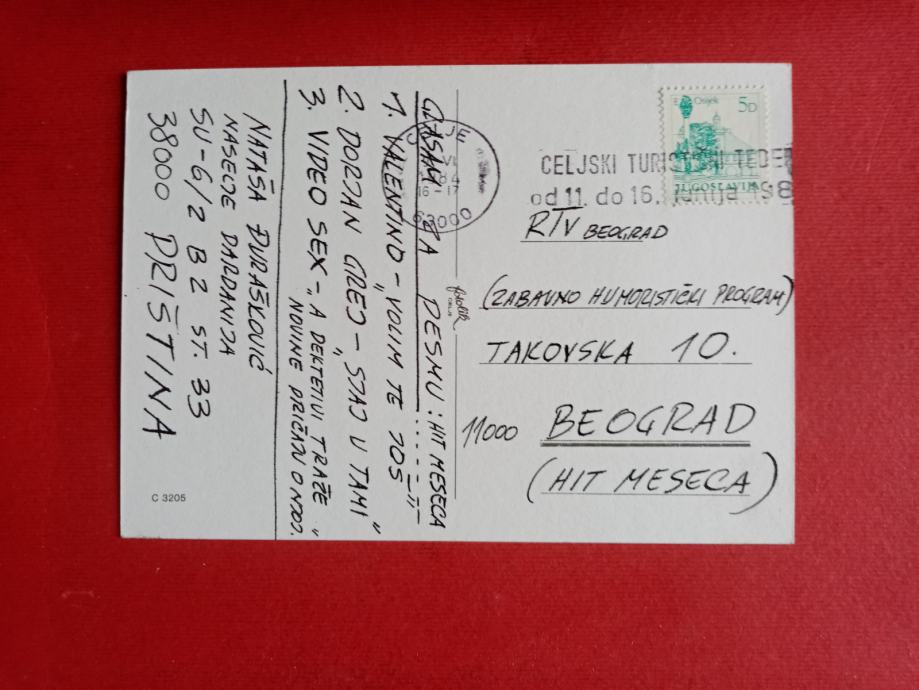 GLASAM ZA PESMU: HIT MESECA
1. VALENTINO - „VOLIM TE JOŠ"
2. DORJAN GREJ - „SJAJ U TAMI"
3. VIDEO SEX - „A DEKTETIVI TRAŽE"
NOVINE PRIČAJU O NJOJ.
NATAŠA ĐURAŠKOVIĆ
NASELJE DARDANIJA
SU-6/2 B2 ST. 33
38000 PRIŠTINA
C 3205
Osijek
5D
JUGOSLAVIJA
CELJE
VI
84
16-17
63000
CELJSKI TURISTIČNI TEDEN
od 11. do 16. junija
RTV BEOGRAD
(ZABAVNO HUMORISTIČKI PROGRAM)
TAKOVSKA 10.
11000 BEOGRAD
(HIT MESECA)